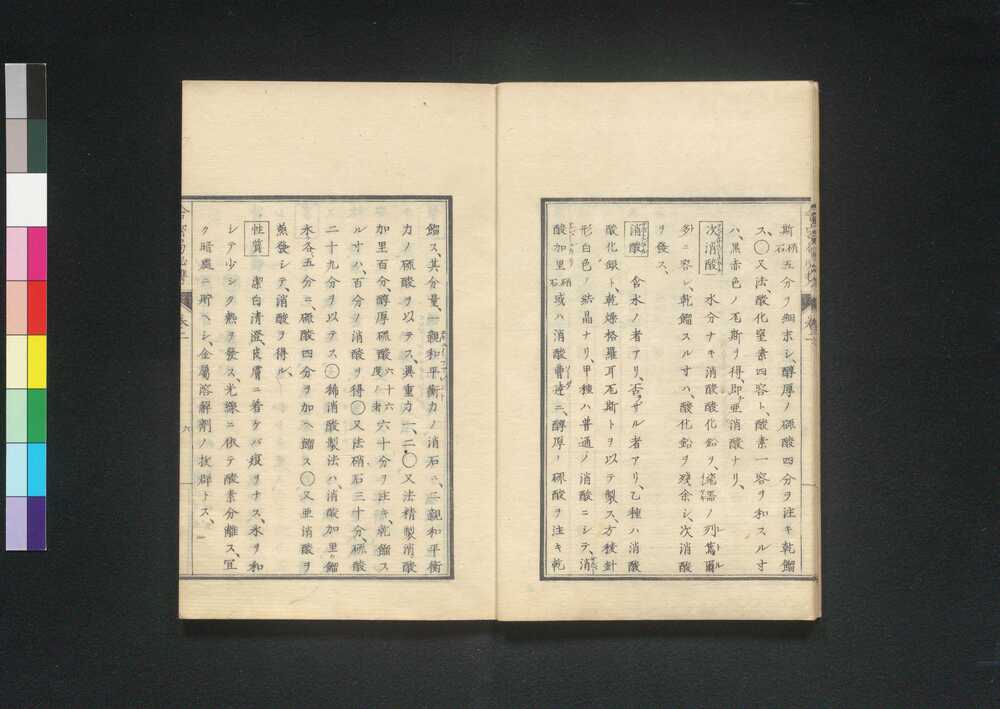 斯硝石五分ヲ細末シ、醇厚ノ硫酸四分ヲ注キ乾餾
ス、〇又法、酸化窒素四容ト、酸素一容ヲ和スルヿ
ハ、黒赤色ノ瓦斯ヲ得、即亜消酸ナリ、
次消酸 水分ナキ消酸酸化鉛ヲ、ノ列篤爾
多ニ容レ、乾餾スルヿハ、酸化鉛ヲ残余シ、次消酸
ヲ發ス、
消酸 含水ノ者アリ、否ザル者アリ、乙種ハ消酸
酸化銀ト、乾燥格羅児瓦斯トヲ以テ製ス、方稜針
形白色ノ結晶ナリ、甲種ハ普通ノ消酸ニシテ、消
酸加里硝石或ハ消酸曹達ニ、醇厚ノ硫酸ヲ注キ乾
餾ス、其分量、一親和平衡力ノ消石ニ、二親和平衡
力ノ硫酸ヲ以テス、異重力一、二、〇又法精製消酸
加里百分、醇厚硫酸六十六度ノ者六十分ヲ注キ、乾餾ス
ルヿハ、百分ノ消酸ヲ得〇又法硝石三十分、硫酸
二十九分ヲ以テス〇稀消酸製法ハ、消酸加里ト餾
水各五分ニ、硫酸四分ヲ加ヘ餾ス〇又亜消酸ヲ
蒸發シテ、消酸ヲ得ル、
性質 潔白清澄、皮膚ニ着ケバ痕ヲナス、水ヲ和
シテ少シク熱ヲ發ス、光線ニ依テ酸素分離ス、宜
ク暗處ニ貯ヘシ、金屬溶解剤ノ抜群トス、
六